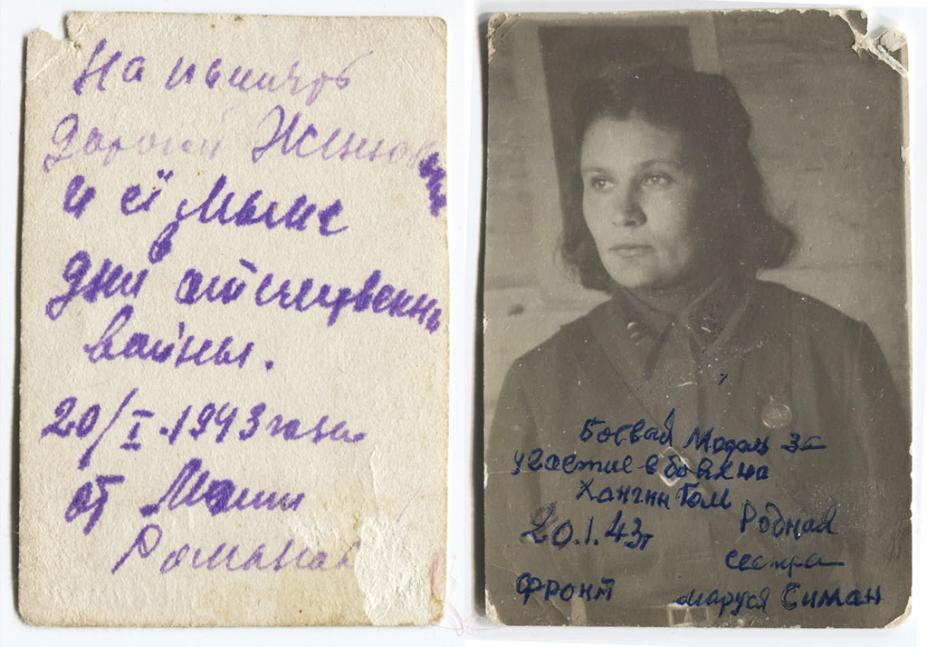 На память
дорогой
и её маме
дни отечествен
войны.
20/I.1943 года
от Маши
Роман
Боевая Медаль за
участие в боях на
20.1.43г
Родная
сестра
фронт
Маруся Симан